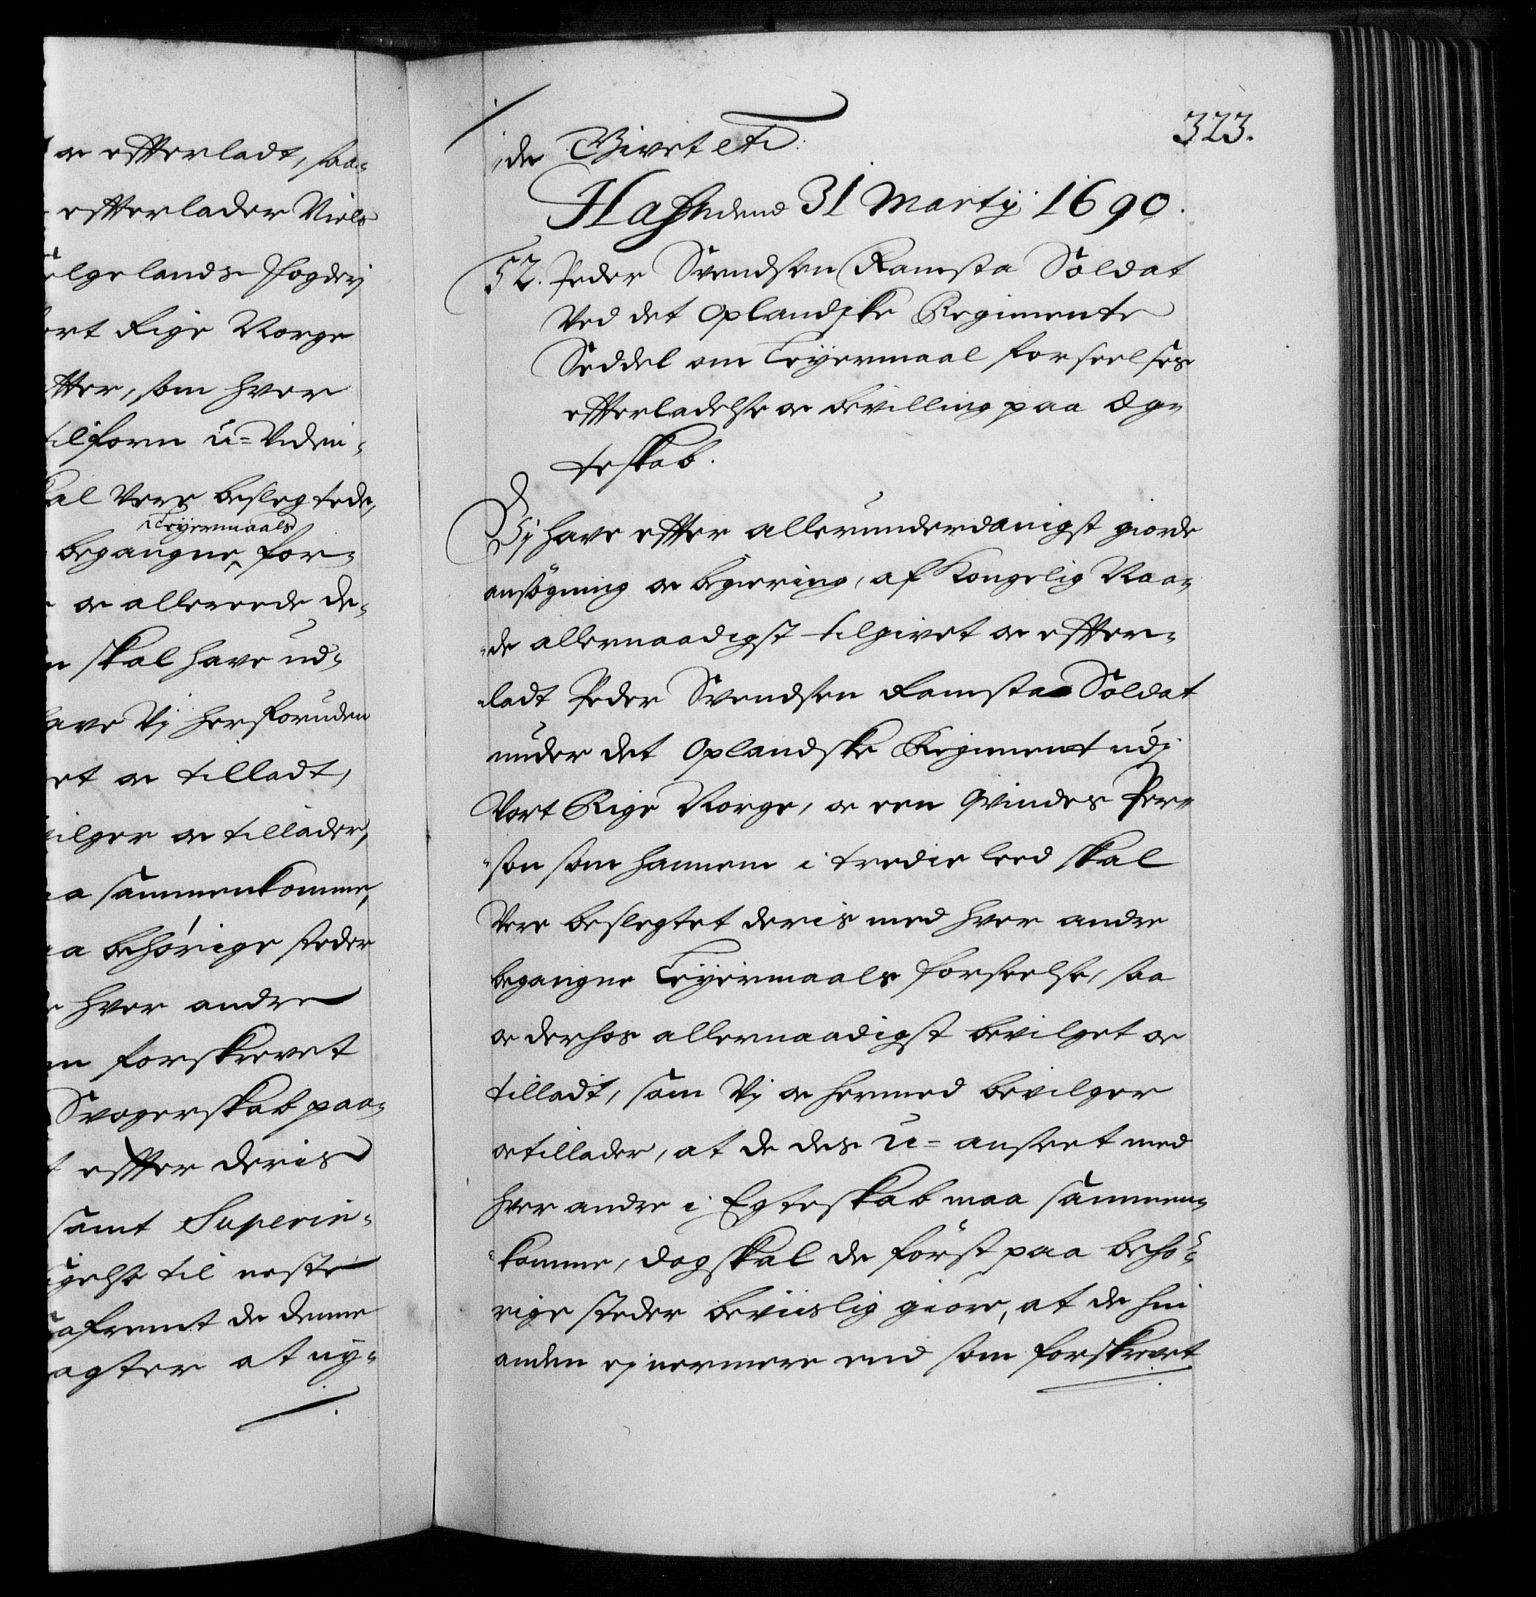 oc efterladt, saa-
efterlader Niels
elgelands Fogderj
ort Rige Norge
tter, som hver
tilforn u-viden-
kal Vere beslegtede,
Leyermaals
begangne for-
oc allereede de-
skal have ud-
ave Vj herforuden
et oc tilladt,
ilger oc tillader,
a sammenkomme,
a behørige steder
hver andre
forskrevet
Svogerskab paa-
efter deris
samt Superin-
gelse til neste
afremt de denne
agter at ny-
323.
de Givet etc:
Hafn dend 31 Martij 1690.
52. Peder Svendsen Ramsta Soldat
Ved det Oplandske Regimente
Seddel om Leyermaal forseelses
efterladelse oc bevilling paa Æg-
teskab.
Vj have efter allerunderdanigst giorde
ansøgning oc begiering, af Kongelig Naa-
de allernaadigst tilgivet oc efter-
ladt Peder Svendsen Ramsta Soldat
under det Oplandske Regiment udj
Vort Rige Norge, oc een Qvindes Per-
son som hannem i tredie leed skal
Vere beslegtet deris med hver andre
begangne Leyermaals forseelse, saa
oc derhos allernaadigst bevilget oc
tilladt, som Vj oc hermed bevilger
oc tillader, at de des u-anseet med
hver andre i Egteskab maa sammen-
komme, dog skal de først paa behø-
rige steder beviislig giøre, at de hin
anden ej nermere end som forskrevet